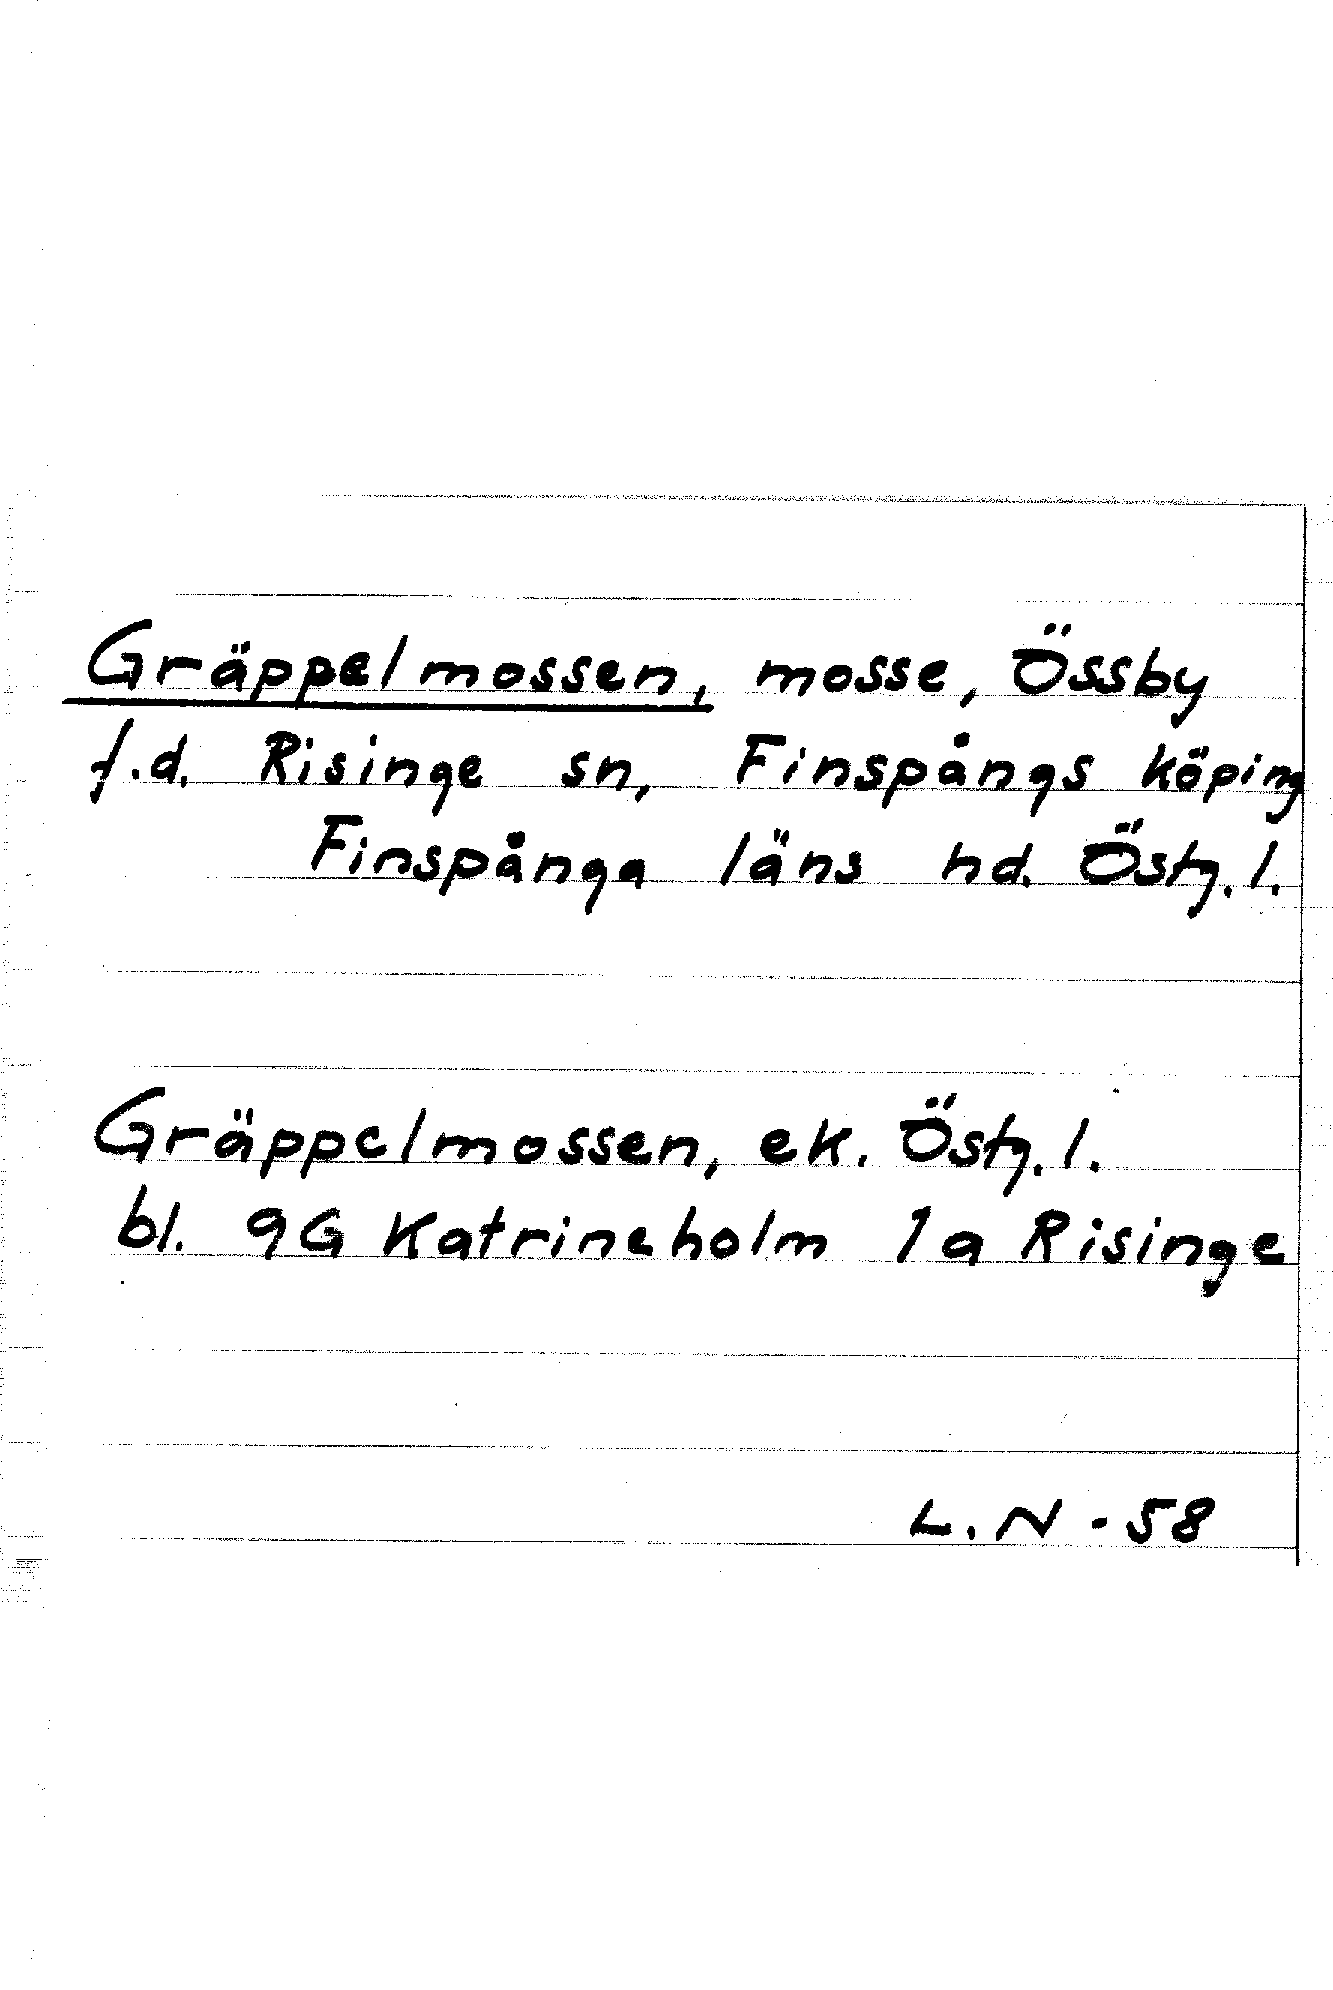 Gräppelmossen, mosse, Össby
f.d. Risinge sn, Finspångs köping
Finspånga läns hd. Östg.l.
Gräppelmossen, ek. Östg.l.
bl. 9G Katrineholm 1a Risinge
L.N - 58